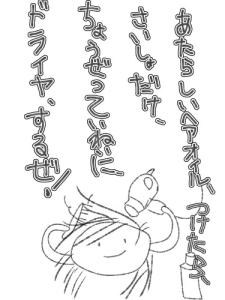 あたらしいヘアオイル、つけたら、
さいしょだけ、
ちょうぜつていねいに、
ドライヤ、するぜ!